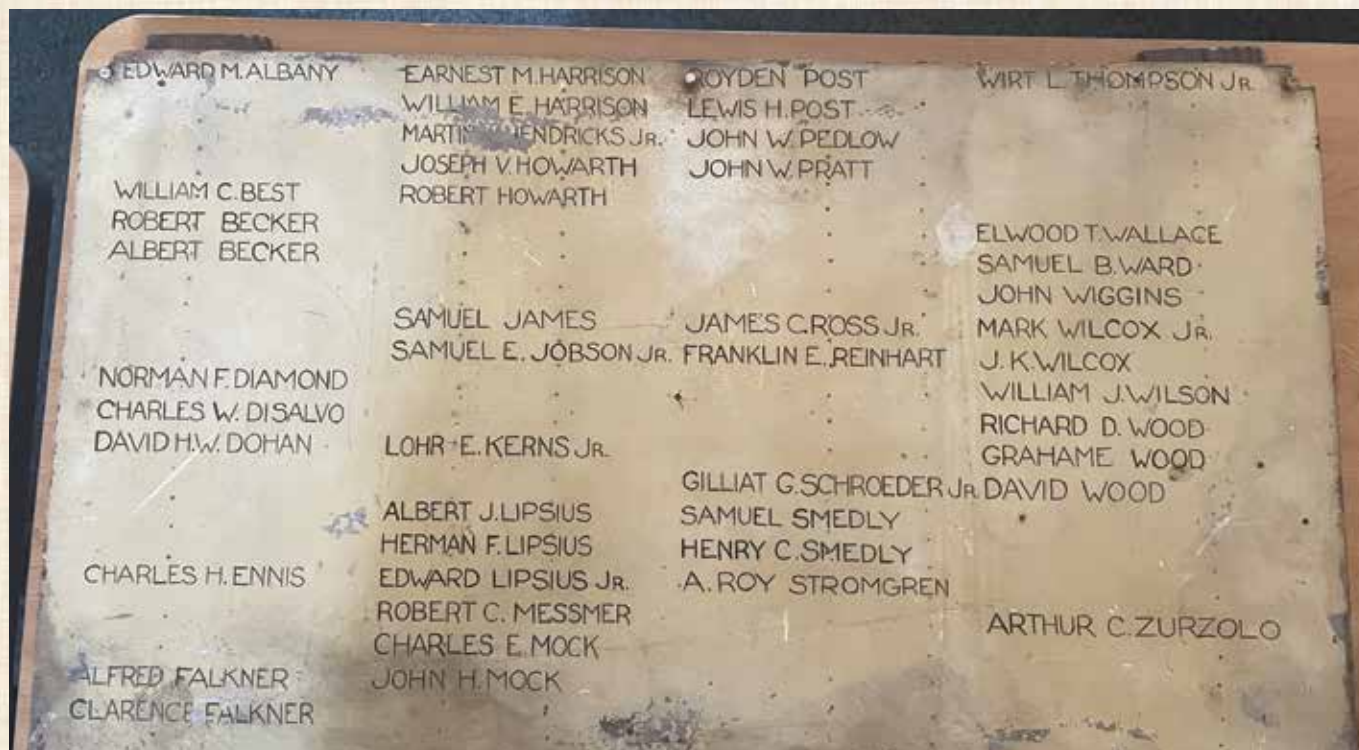 EDWARD M. ALBANY
WILLIAM C. BEST
ROBERT BECKER
ALBERT BECKER
NORMAN F. DIAMOND
CHARLES W. DISALVO
DAVID H.W. DOHAN
CHARLES H. ENNIS
ALFRED FALKNER
CLARENCE FALKNER
EARNEST M. HARRISON
WILLIAM E. HARRISON
MARTIN HENDRICKS JR.
JOSEPH V. HOWARTH
ROBERT HOWARTH
SAMUEL JAMES
SAMUEL E. JOBSON JR.
LOHR E. KERNS JR.
ALBERT J. LIPSIUS
HERMAN F. LIPSIUS
EDWARD LIPSIUS JR.
ROBERT C. MESSMER
CHARLES E. MOCK
JOHN H. MOCK
ROYDEN POST
LEWIS H. POST
JOHN W. PEDLOW
JOHN W. PRATT
JAMES C. ROSS JR.
FRANKLIN E. REINHART
GILLIAT G. SCHROEDER JR
SAMUEL SMEDLY
HENRY C. SMEDLY
A. ROY STROMGREN
WIRT L. THOMPSON JR.
ELWOOD T. WALLACE
SAMUEL B. WARD
JOHN WIGGINS
MARK WILCOX JR.
J. K. WILCOX
WILLIAM J. WILSON
RICHARD D. WOOD
GRAHAME WOOD
DAVID WOOD
ARTHUR C. ZURZOLO